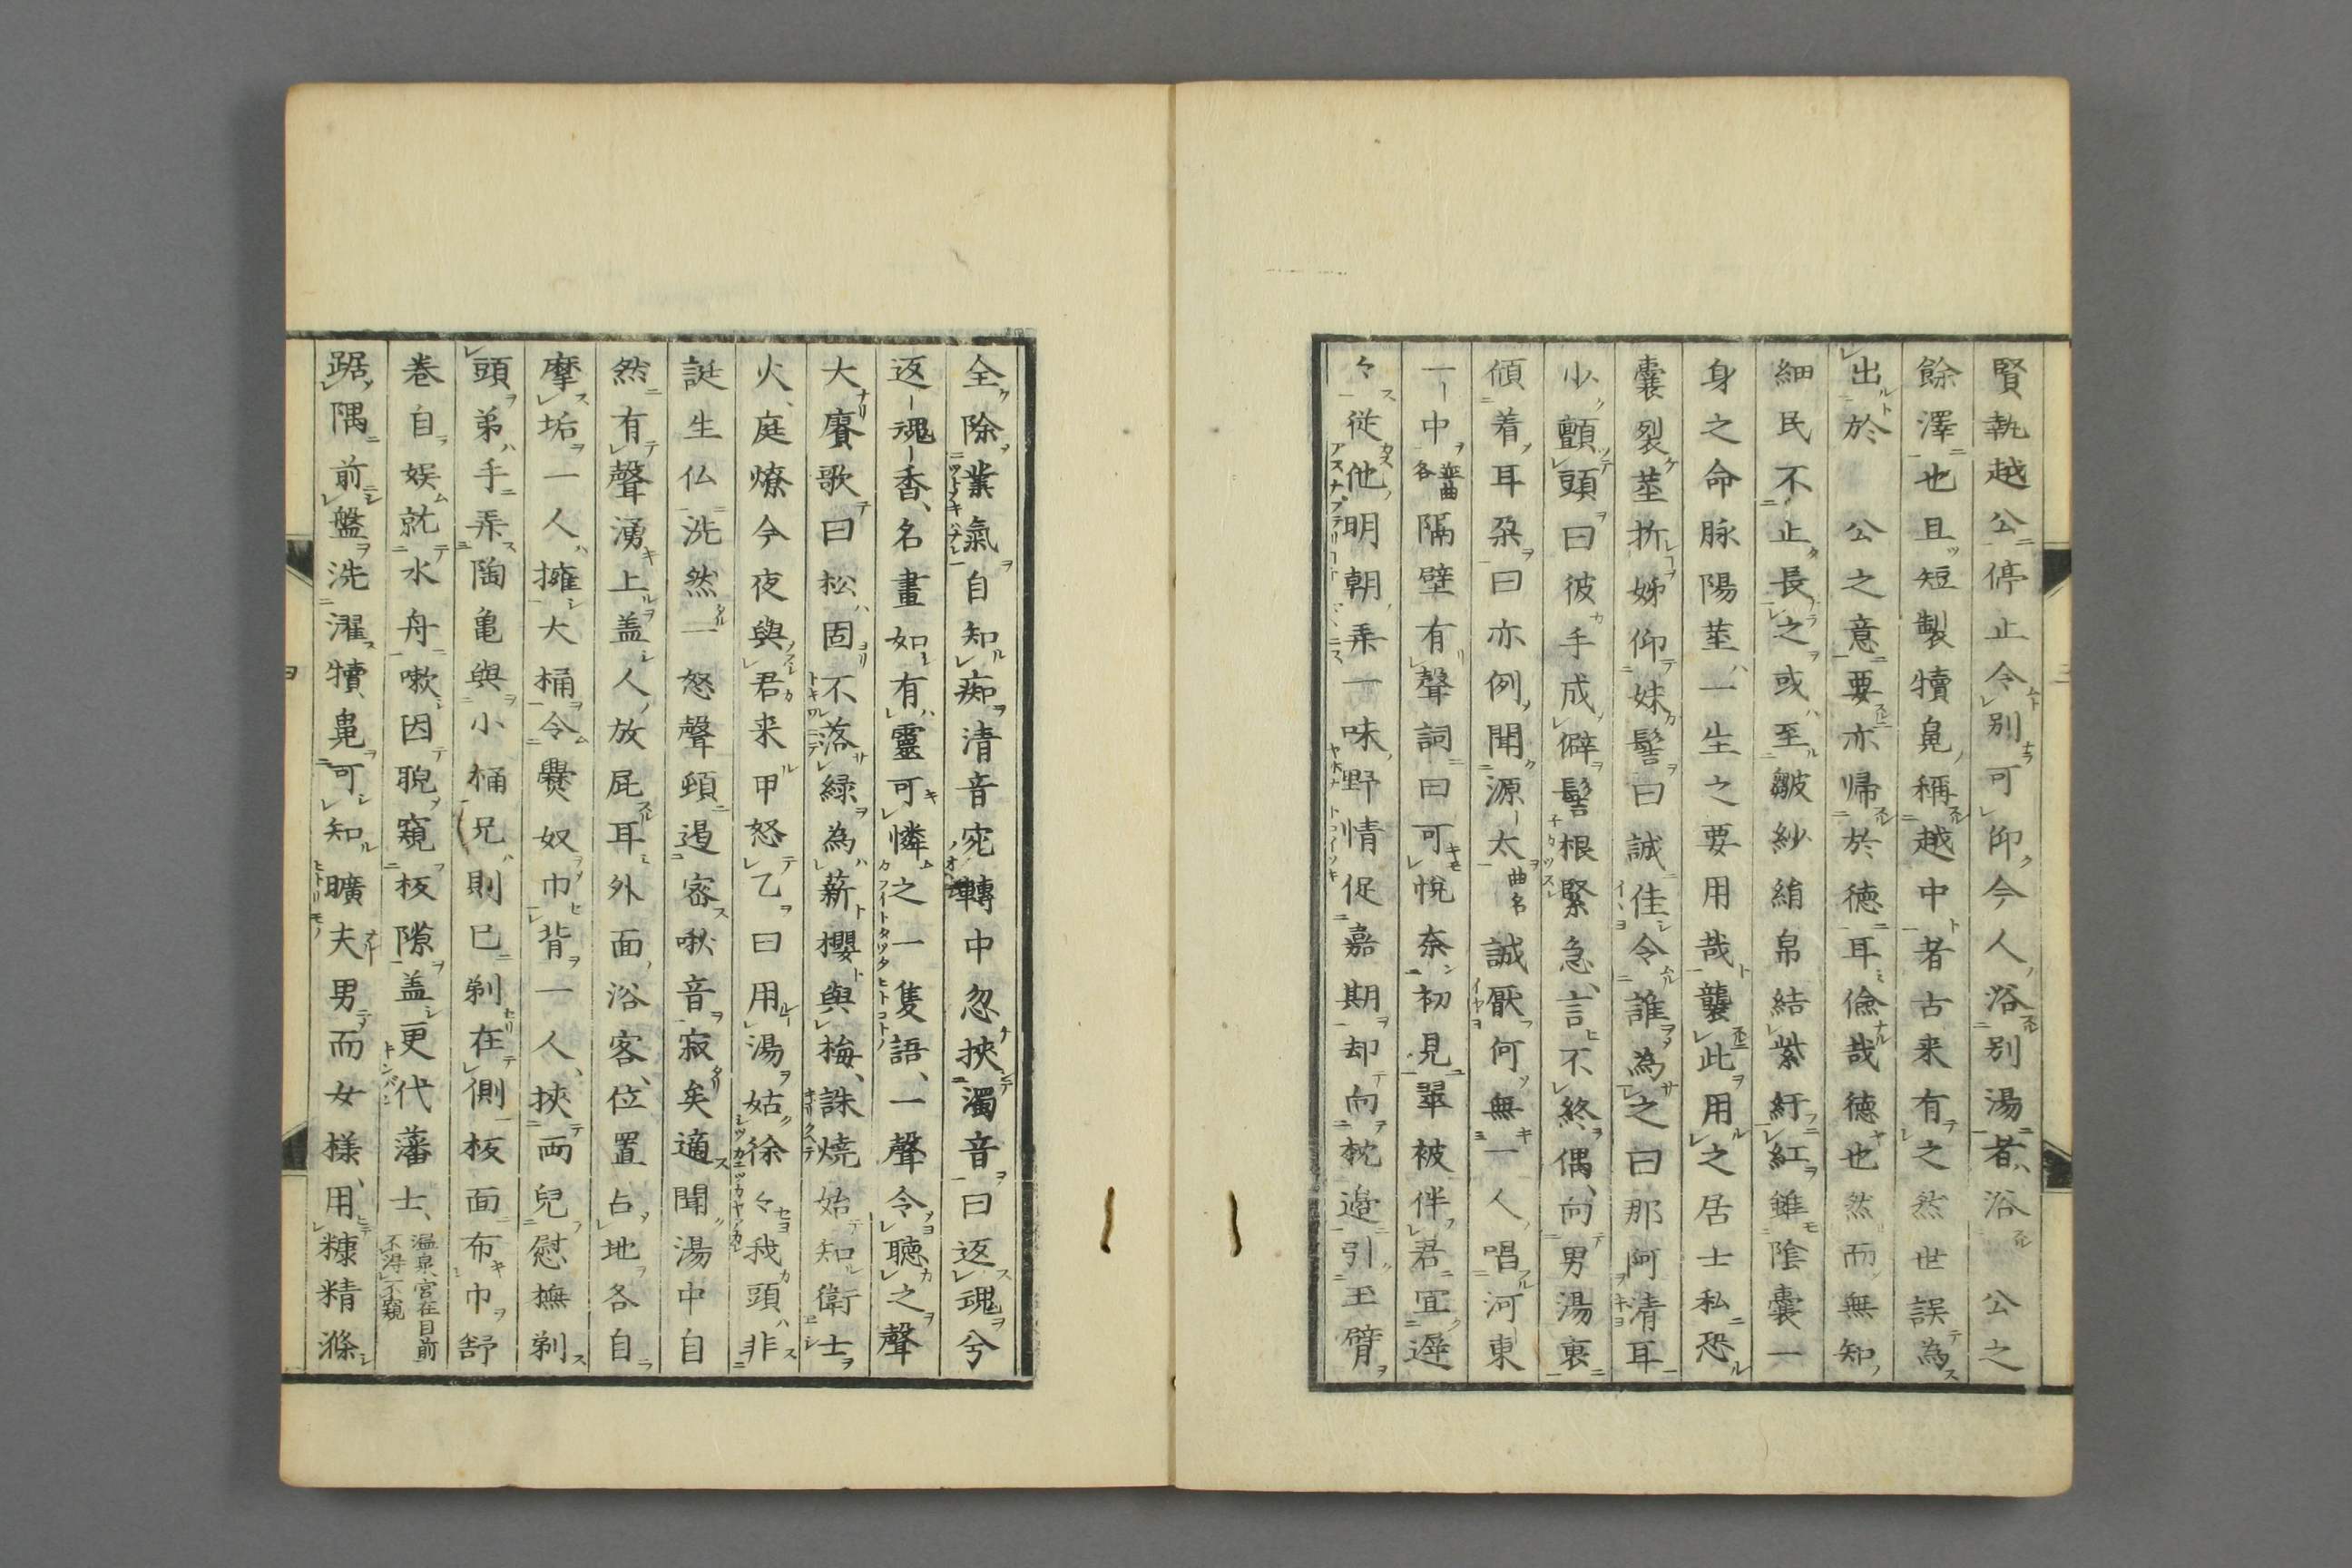 賢執越公停止令別可仰今人浴別湯者浴　公之
餘澤也且短製犢鼻稱越中者古来有之然世誤為
出於　公之意要亦歸於徳耳儉哉徳也然而無知
細民不止長之或至皺紗絹帛結紫紆紅雖陰嚢一
身之命脉陽莖一生之要用哉襲此用之居士私恐
嚢裂莖折姊仰妹髻曰誠佳令誰為之曰那阿清耳
小顫頭曰彼手成僻髻根緊急言不終偶向男湯裏
傾着耳朶曰亦例聞源太曲名誠厭何無一人唱河東
一中並曲名隔壁有聲詞曰可悅奈初見翠被伴君宜遲
々従他明朝乗一味野情促嘉期却向枕邉引玉臂
全除業氣自知痴清音宛轉中忽挾濁音曰返魂兮
返魂香名畫如有靈可憐之一隻語一聲令聽之聲
大賡歌曰松固不落緑為薪櫻與梅誅燒始知衛士
火庭燎今夜與君来甲怒乙曰用湯姑徐々我頭非
誕生仏洗然一怒聲頓遏密啾音寂矣適聞湯中自
然有聲湧上盖人放屁耳外面浴客位置占地各自
摩垢一人擁大桶令爨奴巾背一人挾両兒慰撫剃
頭弟手弄陶亀與小桶兄則已剃在側板面布巾舒
巻自娯就水舟嗽因睨窺板隙盖更代藩士温泉宮在目前不得不窺
踞隅前盤洗濯犢鼻可知曠夫男而女様用糠精滌